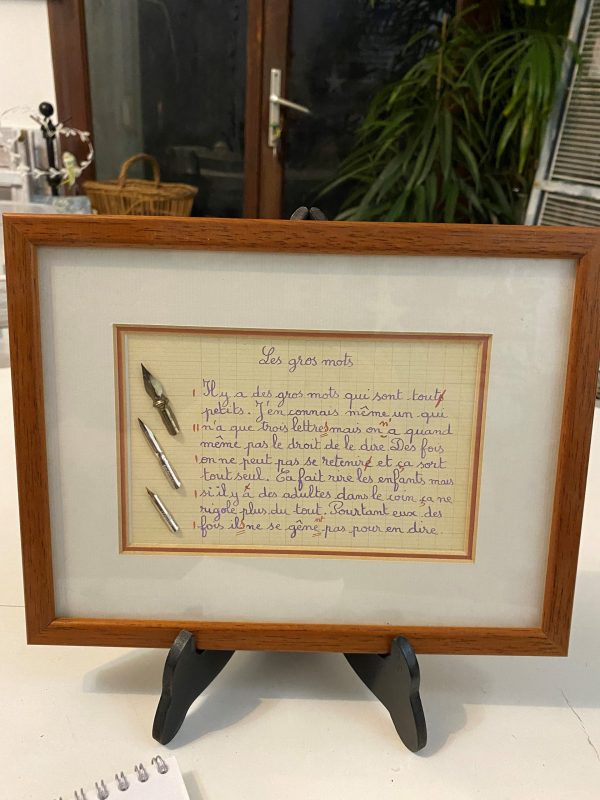 Les gros mots
Il y a des gros mots qui sont touts
petits. J'en connais même un qui
n'a que trois lettres mais on n'a quand
même pas le droit de le dire. Des fois
on ne peut pas se retenire et ça sort
tout seul. Ça fait rire les enfants mais
si il y à des adultes dans le coin ça ne
rigole plus du tout. Pourtant eux des
fois ils ne se gênent pas pour en dire.